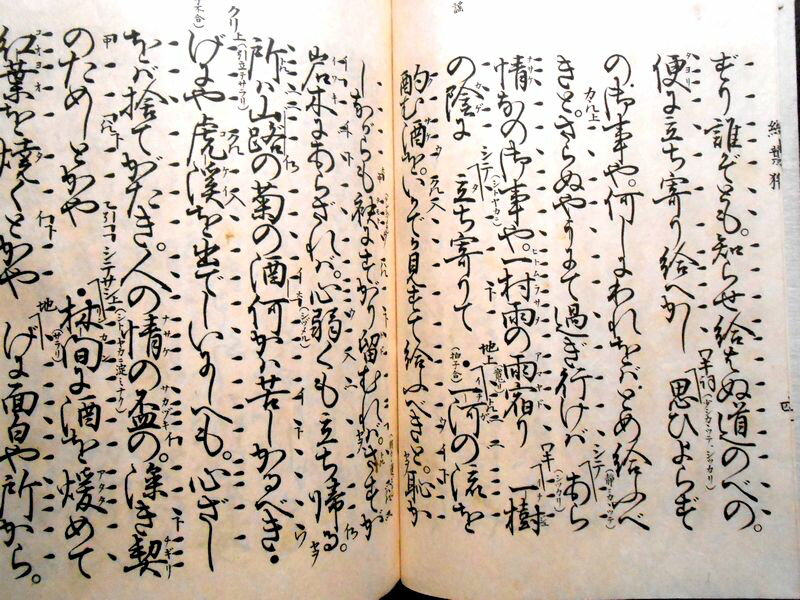 ずり誰ぞとも。知らせ給はぬ道のべの。
便に立ち寄り給へかし 思ひよらず
の御事や。何しにわれをばとめ給ふべ
きと。さらぬやうにて過ぎ行けば あら
情なの御事や。一村雨の雨宿り 一樹
の陰に 立ち寄りて 一河の流を
酌む酒を。いかでか見すて給ふべきと。恥か
しながらも袂にすがり留むれば。さすが
岩木にあらざれば。心弱くも立ち帰る。
所は山路の菊の酒何かは苦しかるべき。
げにや虎溪を出でしいにしへも。心ざし
をば捨てがたき。人の情の盃の。深き契
のためしとかや 林間に酒を煖めて
紅葉を焼くとかや げに面白や所から。